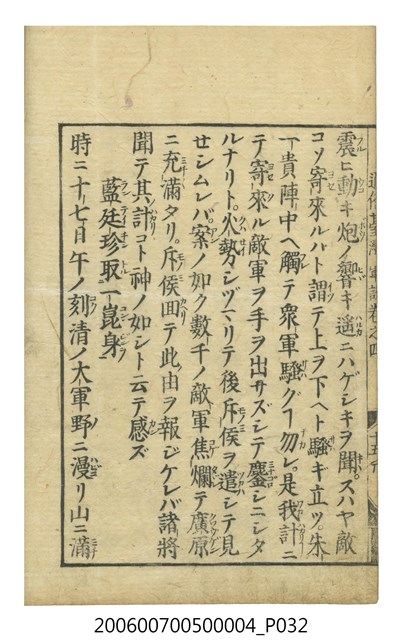 震ヒ動キ炮ノ響キ遥ニハゲシキヲ聞スハヤ敵
コソ寄來ルハト謂テ上ヲ下ヘト騒ギ立ツ。朱
一貴陣中ヘ觸テ衆軍騒グヿ勿レ。是我計ニ
テ寄來ル敵軍ヲ手ヲ出サズシテ鏖シニシタ
ルナリト。火勢シヅマリテ後斥候ヲ遣シテ見
セシムレバ。案ノ如ク數千ノ敵軍焦爛テ廣原
ニ充滿タリ。斥候回テ此由ヲ報ジケレバ諸將
聞テ其計コト神ノ如シト云テ感ズ
藍廷珍取崑身
時ニ十七日午ノ刻清ノ大軍野ニ漫リ山ニ滿
200600700500004_P032